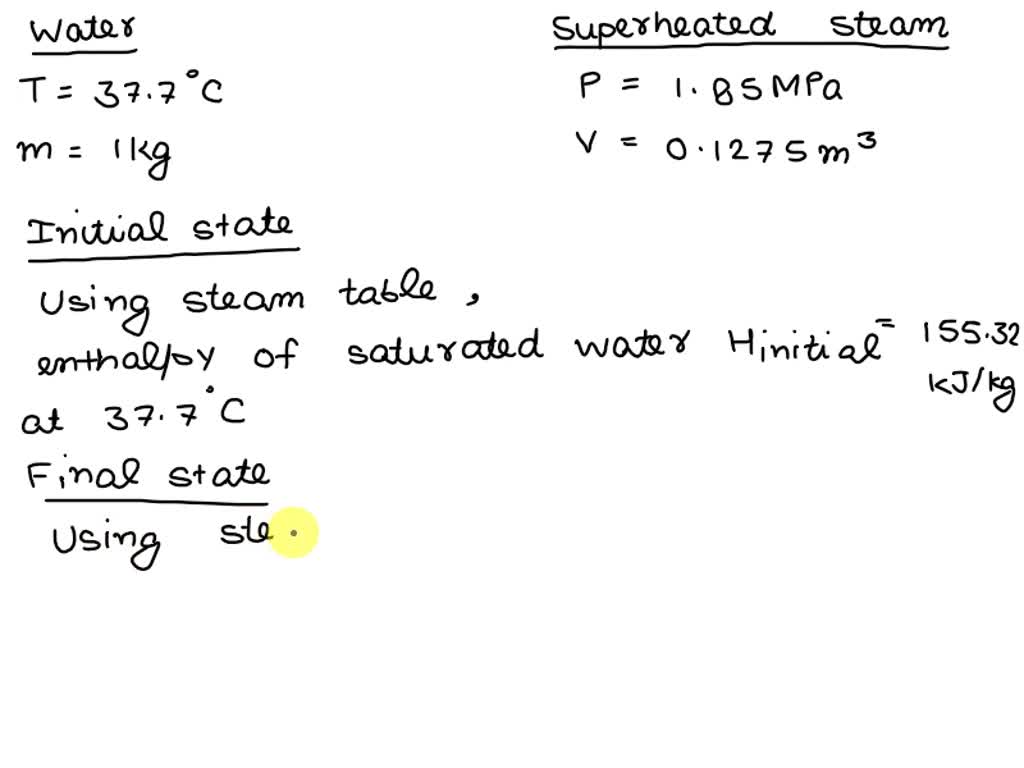 Water
T = 37.7°C
m = 1kg
Superheated steam
P = 1.85MPa
V = 0.1275m³
Initial state
Using steam table,
enthalpy of saturated water Hinitial = 155.32 kJ/kg
at 37.7°C
Final state
Using ste